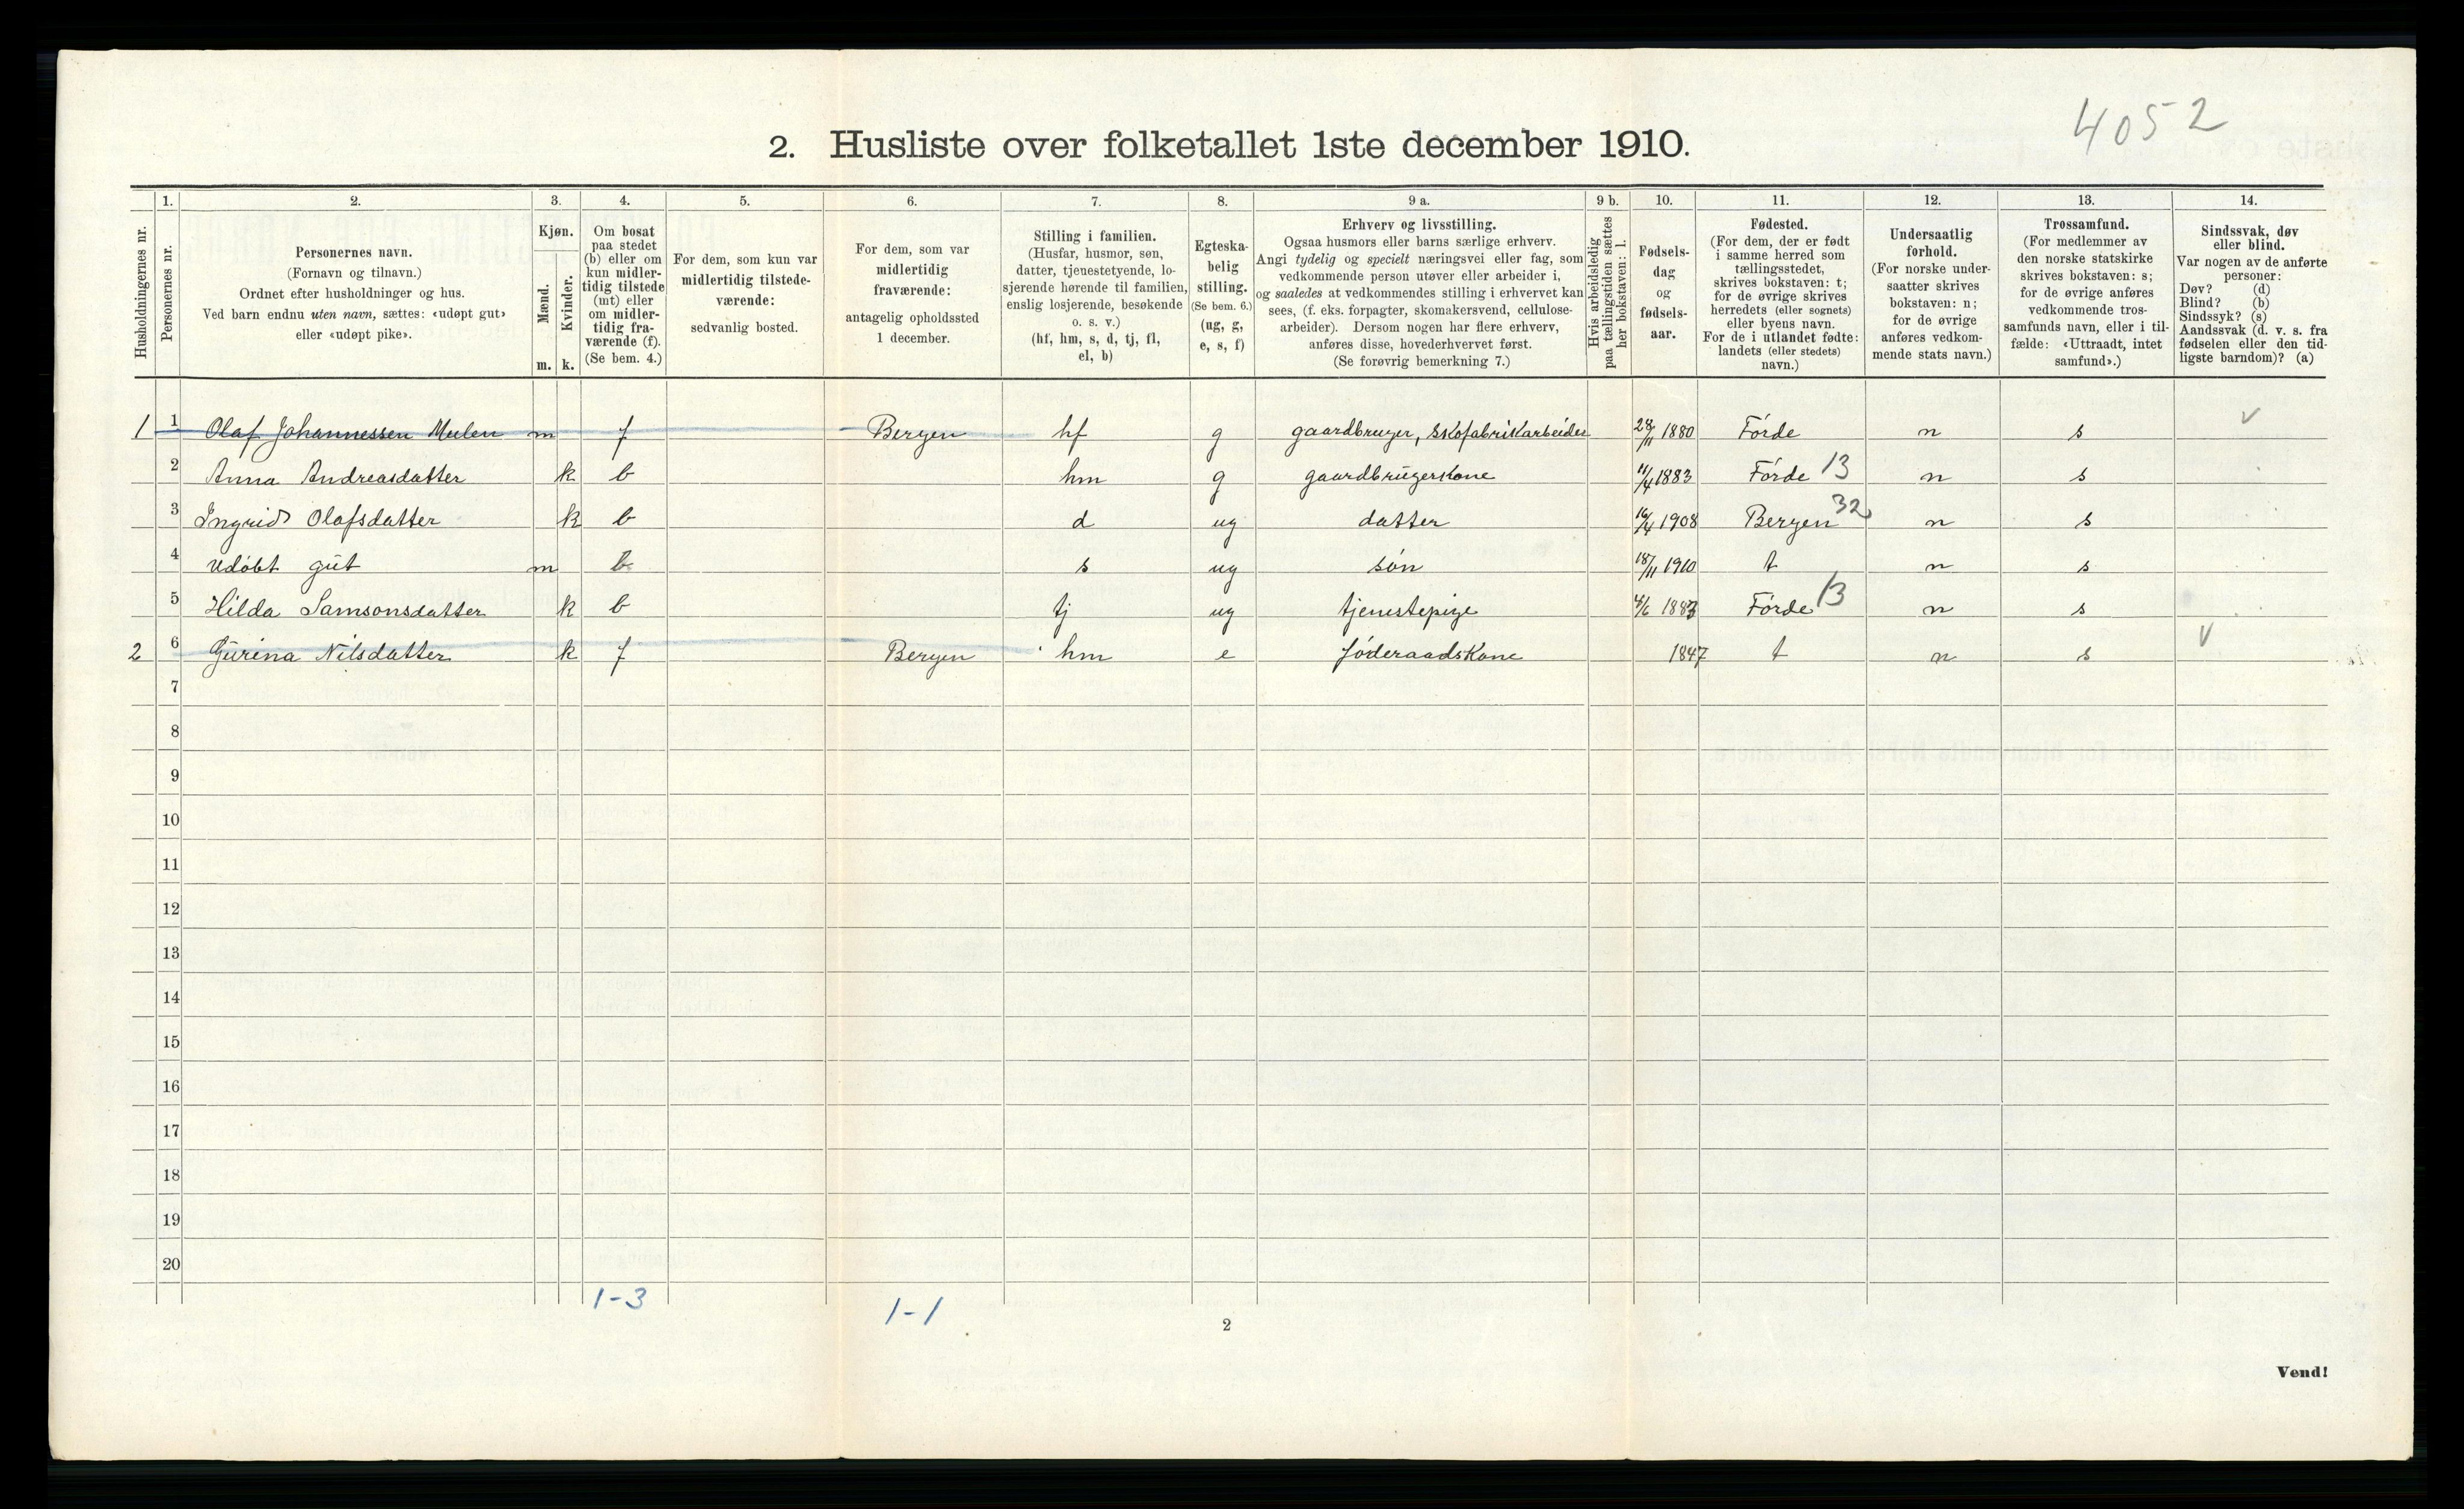 4052
2. Husliste over folketallet 1ste december 1910.
1. 2. 3. 4. 5. 6. 7. 8. 9 a. 9 b. 10. 11. 12. 13. 14.
Husholdningernes nr.
Personernes nr.
Personernes navn.
(Fornavn og tilnavn.)
Ordnet efter husholdninger og hus.
Ved barn endnu uten navn, sættes: «udøpt gut»
eller «udøpt pike».
Kjøn.
Mænd.
Kvinder.
m. k.
Om bosat
paa stedet
(b) eller om
kun midler-
tidig tilstede
(mt) eller
om midler-
tidig fra-
værende (f).
(Se bem. 4.)
For dem, som kun var
midlertidig tilstede-
værende:
sedvanlig bosted.
For dem, som var
midlertidig
fraværende:
antagelig opholdssted
1 december.
Stilling i familien.
(Husfar, husmor, søn,
datter, tjenestetyende, lo-
sjerende hørende til familien,
enslig losjerende, besøkende
o. s. v.)
(hf, hm, s, d, tj, fl,
el, b)
Egteska-
belig
stilling.
(Se bem. 6.)
(ug, g,
e, s, f)
Erhverv og livsstilling.
Ogsaa husmors eller barns særlige erhverv.
Angi tydelig og specielt næringsvei eller fag, som
vedkommende person utøver eller arbeider i,
og saaledes at vedkommendes stilling i erhvervet kan
sees, (f. eks. forpagter, skomakersvend, cellulose-
arbeider). Dersom nogen har flere erhverv,
anføres disse, hovederhvervet først.
(Se forøvrig bemerkning 7.)
Hvis arbeidsledig
paa tællingstiden sættes
her bokstaven: l.
Fødsels-
dag
og
fødsels-
aar.
Fødested.
(For dem, der er født
i samme herred som
tællingsstedet,
skrives bokstaven: t;
for de øvrige skrives
herredets (eller sognets)
eller byens navn.
For de i utlandet fødte:
landets (eller stedets)
navn.)
Undersaatlig
forhold.
(For norske under-
saatter skrives
bokstaven: n;
for de øvrige
anføres vedkom-
mende stats navn.)
Trossamfund.
(For medlemmer av
den norske statskirke
skrives bokstaven: s;
for de øvrige anføres
vedkommende tros-
samfunds navn, eller i til-
fælde: «Uttraadt, intet
samfund».)
Sindssvak, døv
eller blind.
Var nogen av de anførte
personer:
Døv? (d)
Blind? (b)
Sindssyk? (s)
Aandssvak (d. v. s. fra
fødselen eller den tid-
ligste barndom)? (a)
1 1 Olaf Johannessen Meelen m f Bergen hf g gaardbruger, skofabrikarbeider 28/11 1880 Førde n s v
2 Anna Andreasdatter k b hm g gaardbrugerkone 11/4 1883 Førde 13 n s
3 Ingrid Olafsdatter k b d ug datter 16/4 1908 Bergen 32 n s
4 Udøbt gut m b s ug søn 18/11 1910 t n s
5 Hilda Samsonsdatter k b tj ug tjenestepige 4/6 1883 Førde 13 n s
2 6 Gurina Nilsdatter k f Bergen hm e føderaadskone 1847 t n s v
7
8
9
10
11
12
13
14
15
16
17
18
19
20
1-3 1-1
2
Vend!